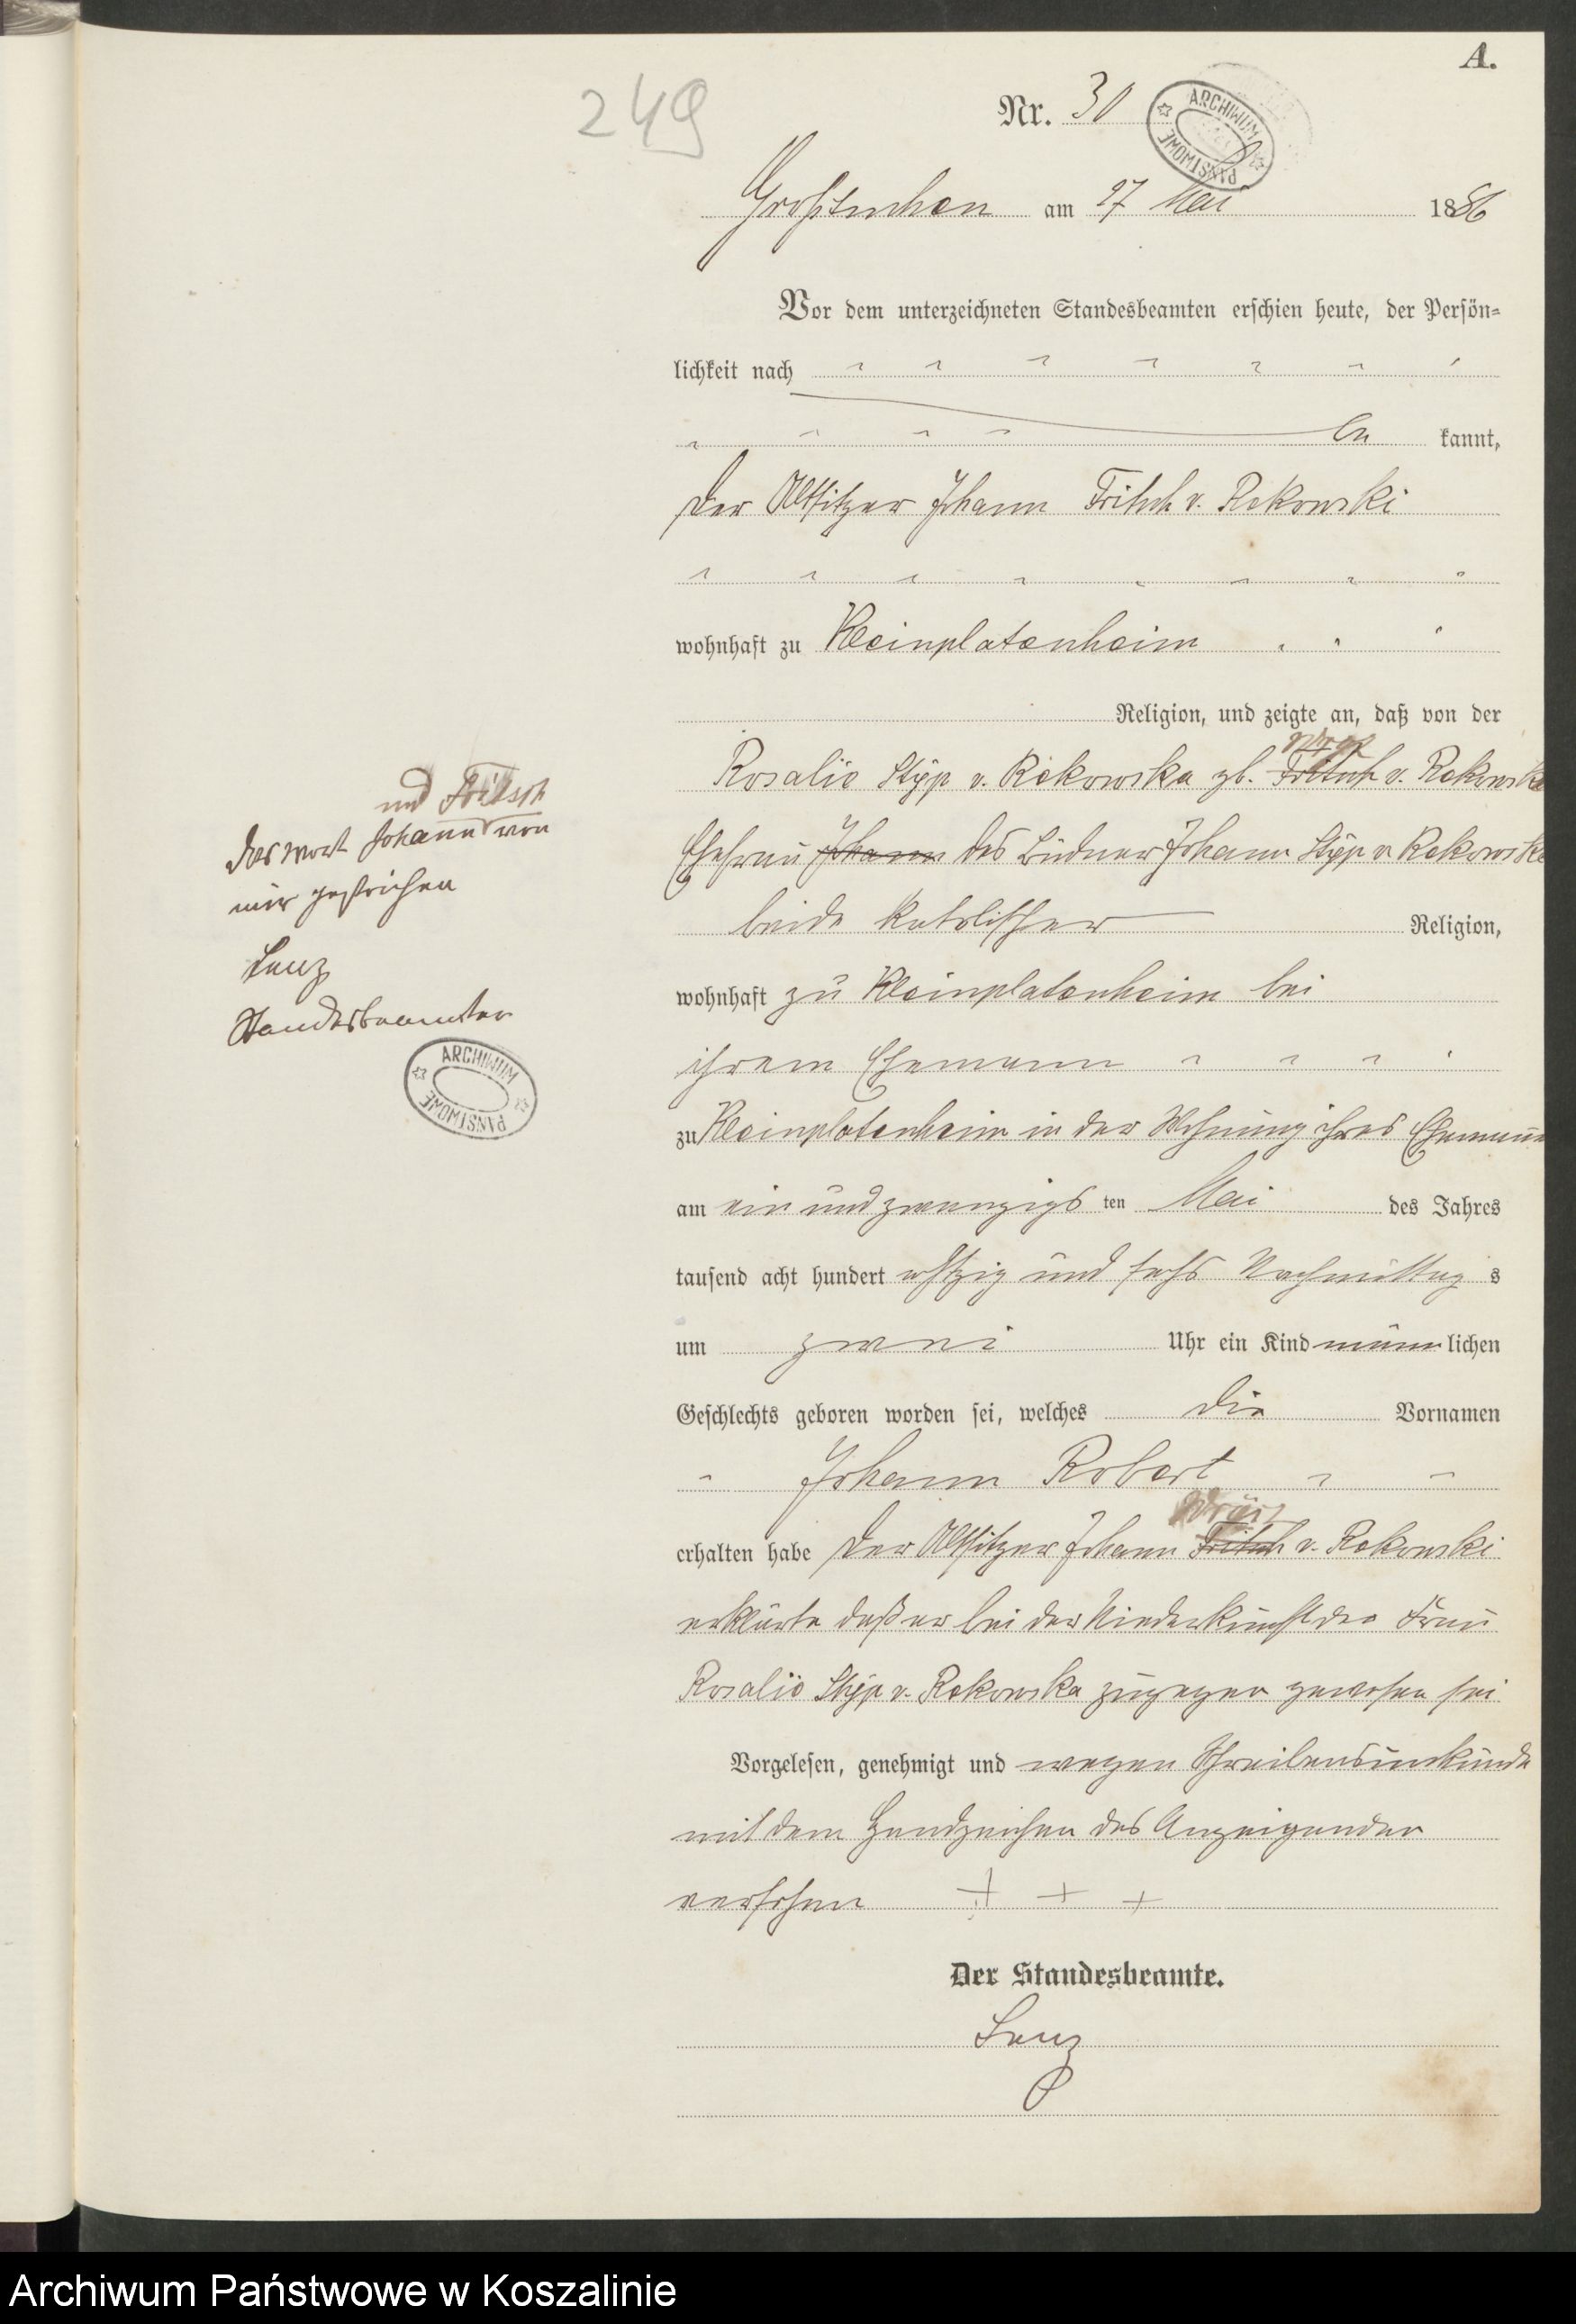 A.
249
Nr. 30
ARCHIWUM PAŃSTWOWE
Großtuchen am 27 Mai 1886
Vor dem unterzeichneten Standesbeamten erschien heute, der Persön-
lichkeit nach
be kannt,
der Altsitzer Johann Fritsch v. Rekowski
wohnhaft zu Kleinplatenheim
Religion, und zeigte an, daß von der
Rosalie Styp v. Rekowska gb. Fritsch v. Rekowska
Ehefrau Johann des Büdner Johann Styp v Rekowski
beide katolischer Religion,
wohnhaft zu Kleinplatenheim bei
ihrem Ehemann
zu Kleinplatenheim in der Wohnung ihres Ehemanns
am ein und zwanzigs ten Mai des Jahres
tausend acht hundert achtzig und sechs Nachmittag s
um zwei Uhr ein Kind männ lichen
Geschlechts geboren worden sei, welches die Vornamen
Johann Robert
erhalten habe der Altsitzer Johann Fritsch v. Rekowski
erklärte daß er bei der Niederkunft der Frau
Rosalie Styp v. Rekowska zugegen gewesen sei
Vorgelesen, genehmigt und wegen Schreibensunkunde
mit dem Handzeichen des Anzeigenden
versehen + + +
Der Standesbeamte.
Lenz
und Fritsch
das wort Johann von
mir gestrichen
Lenz
Standesbeamter
ARCHIWUM PAŃSTWOWE
Archiwum Państwowe w Koszalinie